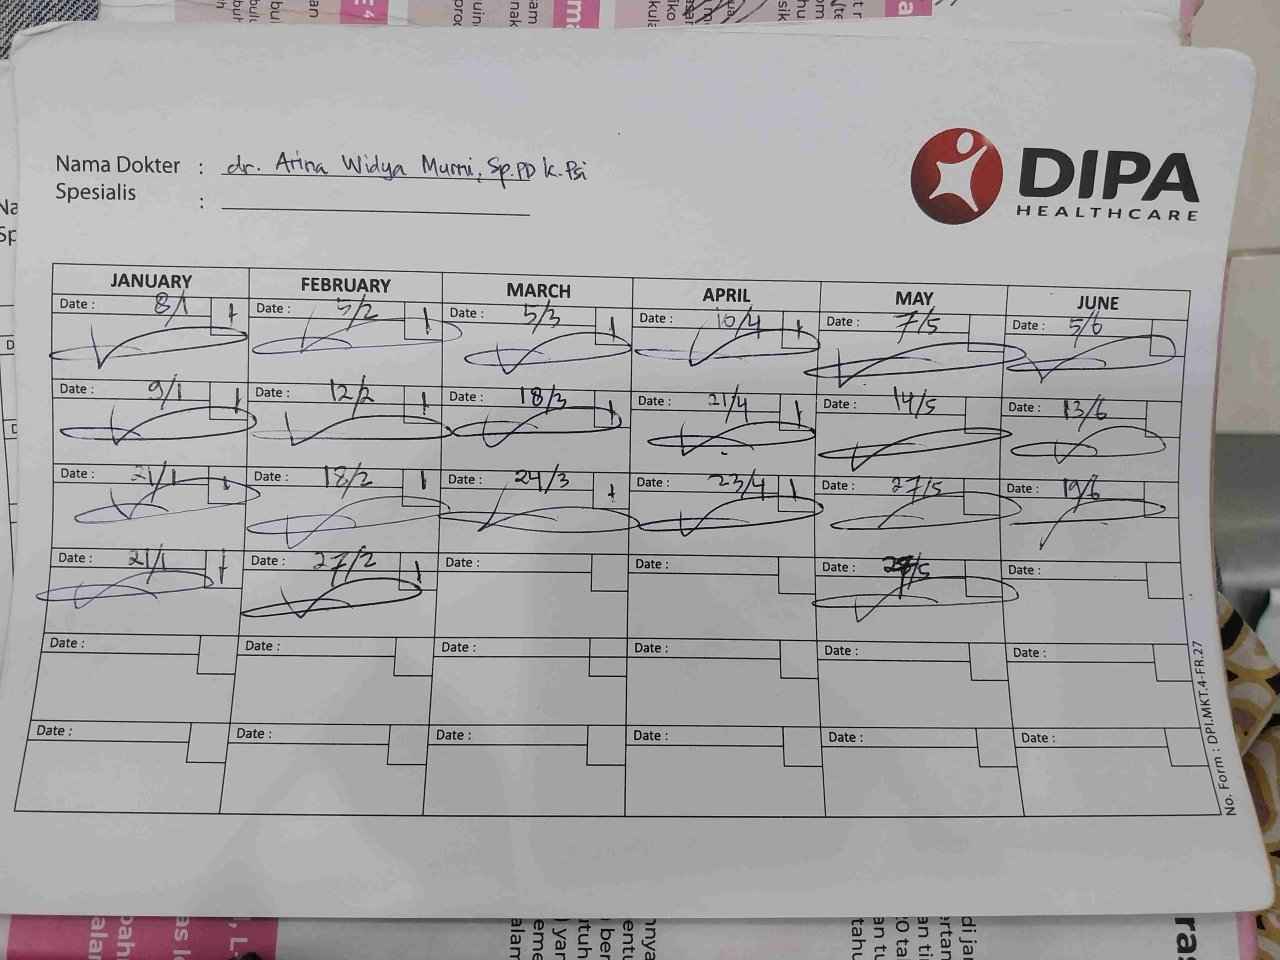 Nama Dokter : dr. Arina Widya Murni, Sp.PD K.Psi
Spesialis :
DIPA
HEALTHCARE
JANUARY FEBRUARY MARCH APRIL MAY JUNE
Date : 8/1 Date : 5/2 Date : 5/3 Date : 10/4 Date : 7/5 Date : 5/6
Date : 9/1 Date : 12/2 Date : 18/3 Date : 21/4 Date : 14/5 Date : 13/6
Date : 21/1 Date : 18/2 Date : 24/3 Date : 23/4 Date : 27/5 Date : 19/6
Date : 21/1 Date : 27/2 Date : Date : Date : Date :
Date : Date : Date : Date : Date : Date :
Date : Date : Date : Date : Date : Date :
No. Form : DPI.MKT.4-FR.27